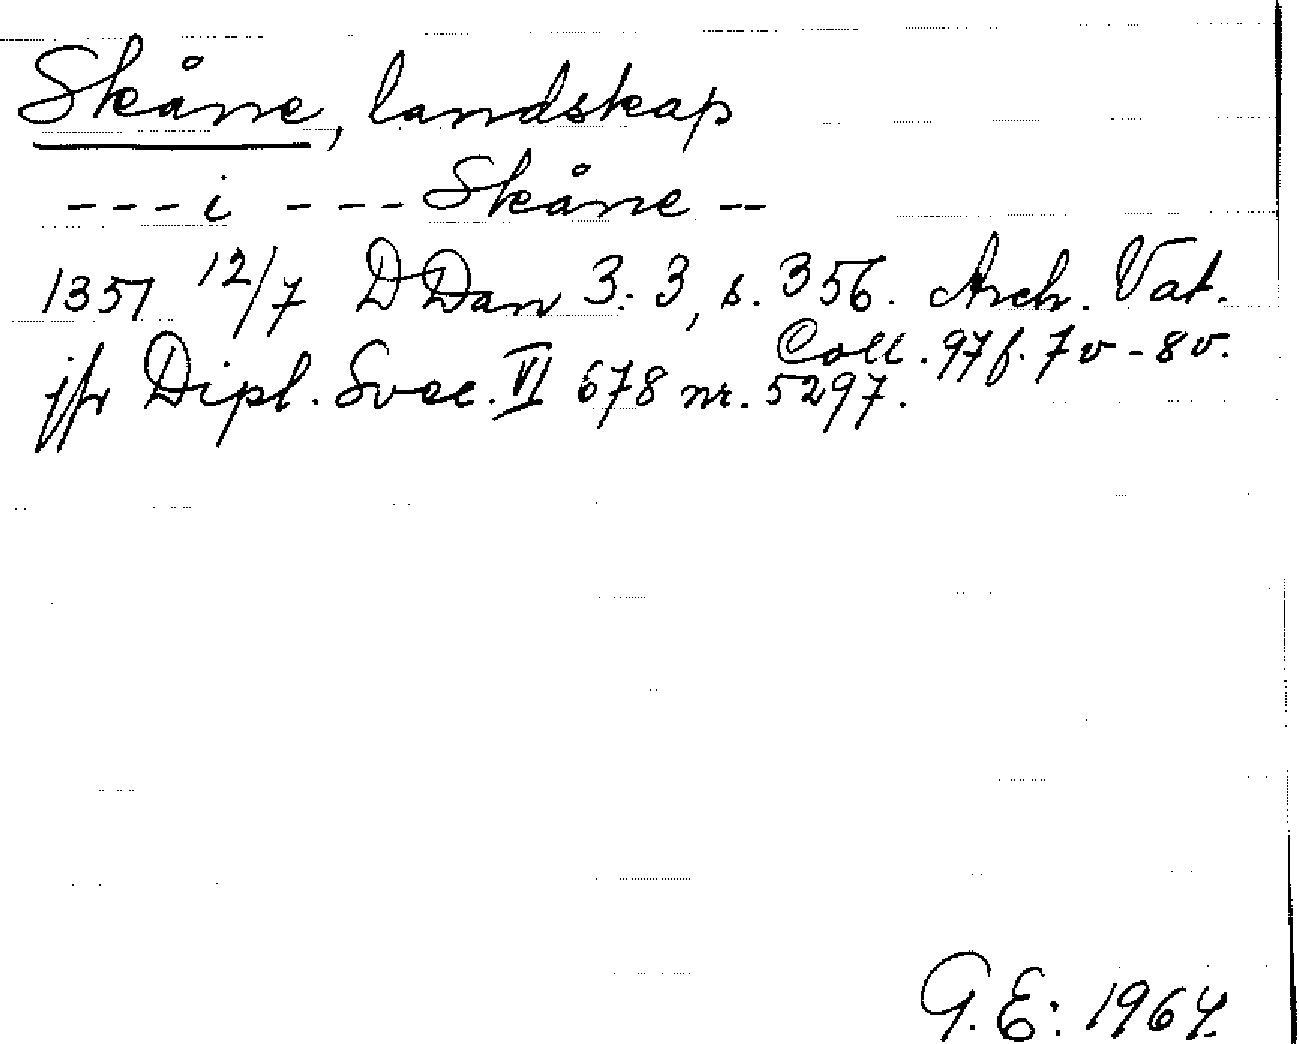 Skåne, landskap
---i ---Skåne--
1351 12/7 DDan 3.3, s. 356. Arch. Vat.
Coll. 97 f. 7v-8v.
jfr Dipl. Svec. VI 678 nr. 5297.
G.E: 1964.